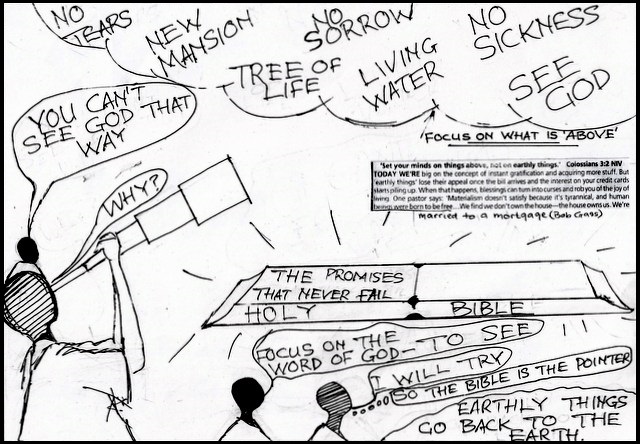 NO
TEARS
NEW
MANSION
NO
SORROW
NO
SICKNESS
TREE OF
LIFE
LIVING
WATER
SEE
GOD
YOU CAN'T
SEE GOD THAT
WAY
'FOCUS ON WHAT IS 'ABOVE'
'Set your minds on things above, not on earthly things.' Colossians 3:2 NIV
TODAY WE'RE big on the concept of instant gratification and acquiring more stuff. But
'earthly things' lose their appeal once the bill arrives and the interest on your credit cards
starts piling up. When that happens, blessings can turn into curses and rob you of the joy of
living. One pastor says: 'Materialism doesn't satisfy because it's tyrannical, and human
beings were born to be free... We find we don't own the house—the house owns us. We're
married to a mortgage (Bob Gass)
WHY?
THE PROMISES
THAT NEVER FAIL
HOLY BIBLE
FOCUS ON THE
WORD OF GOD - TO SEE
I WILL TRY
SO THE BIBLE IS THE POINTER
EARTHLY THINGS
GO BACK TO THE
EARTH.